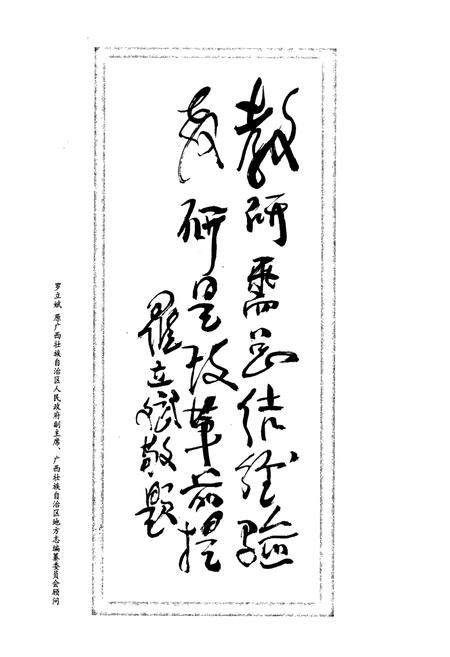 教研需总结经验
教研是改革前提
罗立斌敬题
罗立斌 原广西壮族自治区人民政府副主席、广西壮族自治区地方志编纂委员会顾问